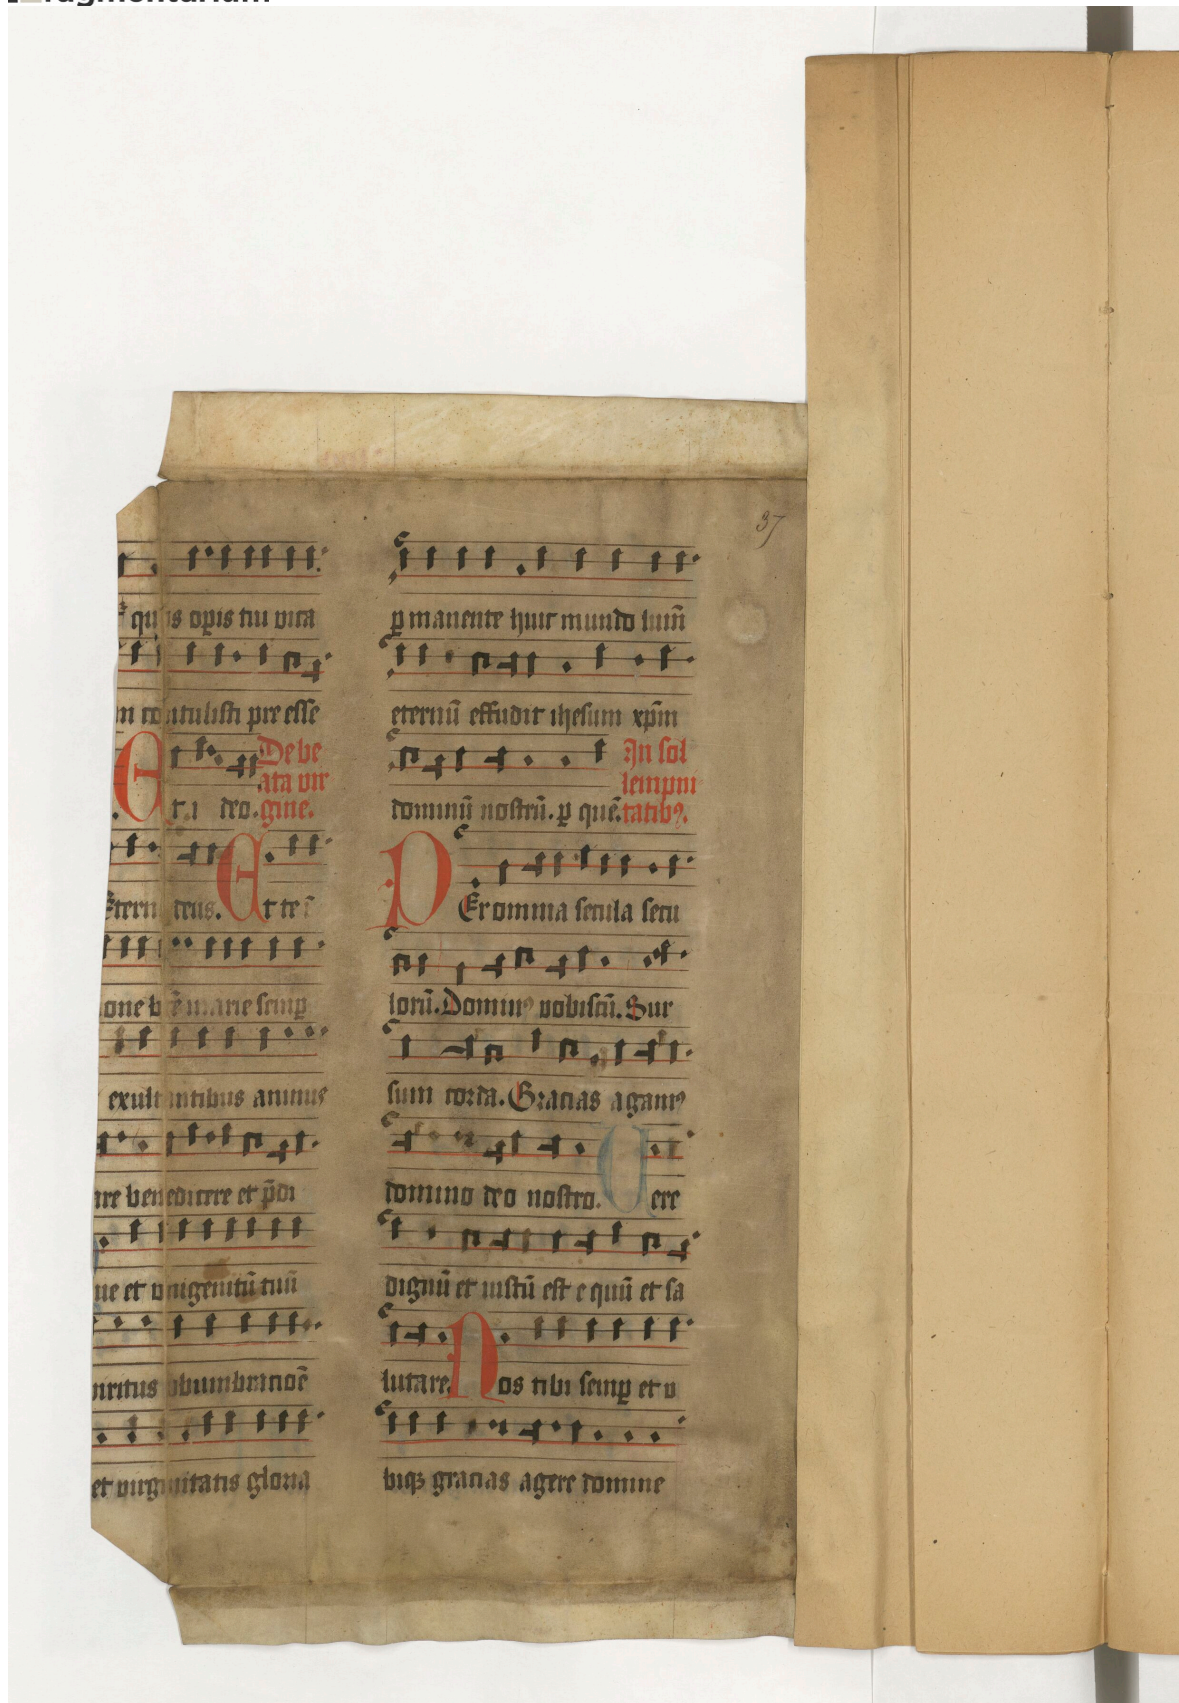 fragmentarium
37
opis tui vita
contulisti pre esse
De be
ata vir
gine.
deo.
Etern deus. Et te
one marie semp
exultantibus animis
benedicere et p̄di
et vnigenitū tuū
obumbracōē
et virginitatis gloria
ꝑmanente huic mundo lumē
eternū effudit ihesum xp̄m
dominū nostrū. ꝑ quē.
In sol
lempni
tatibꝯ.
PEr omnia secula secu
lorū. Dominꝯ vobiscū. Sur
sum corda. Gracias agamꝯ
domino deo nostro. Uere
dignū et iustū est equū et sa
lutare. Nos tibi semꝑ et v
biqꝫ gracias agere domine